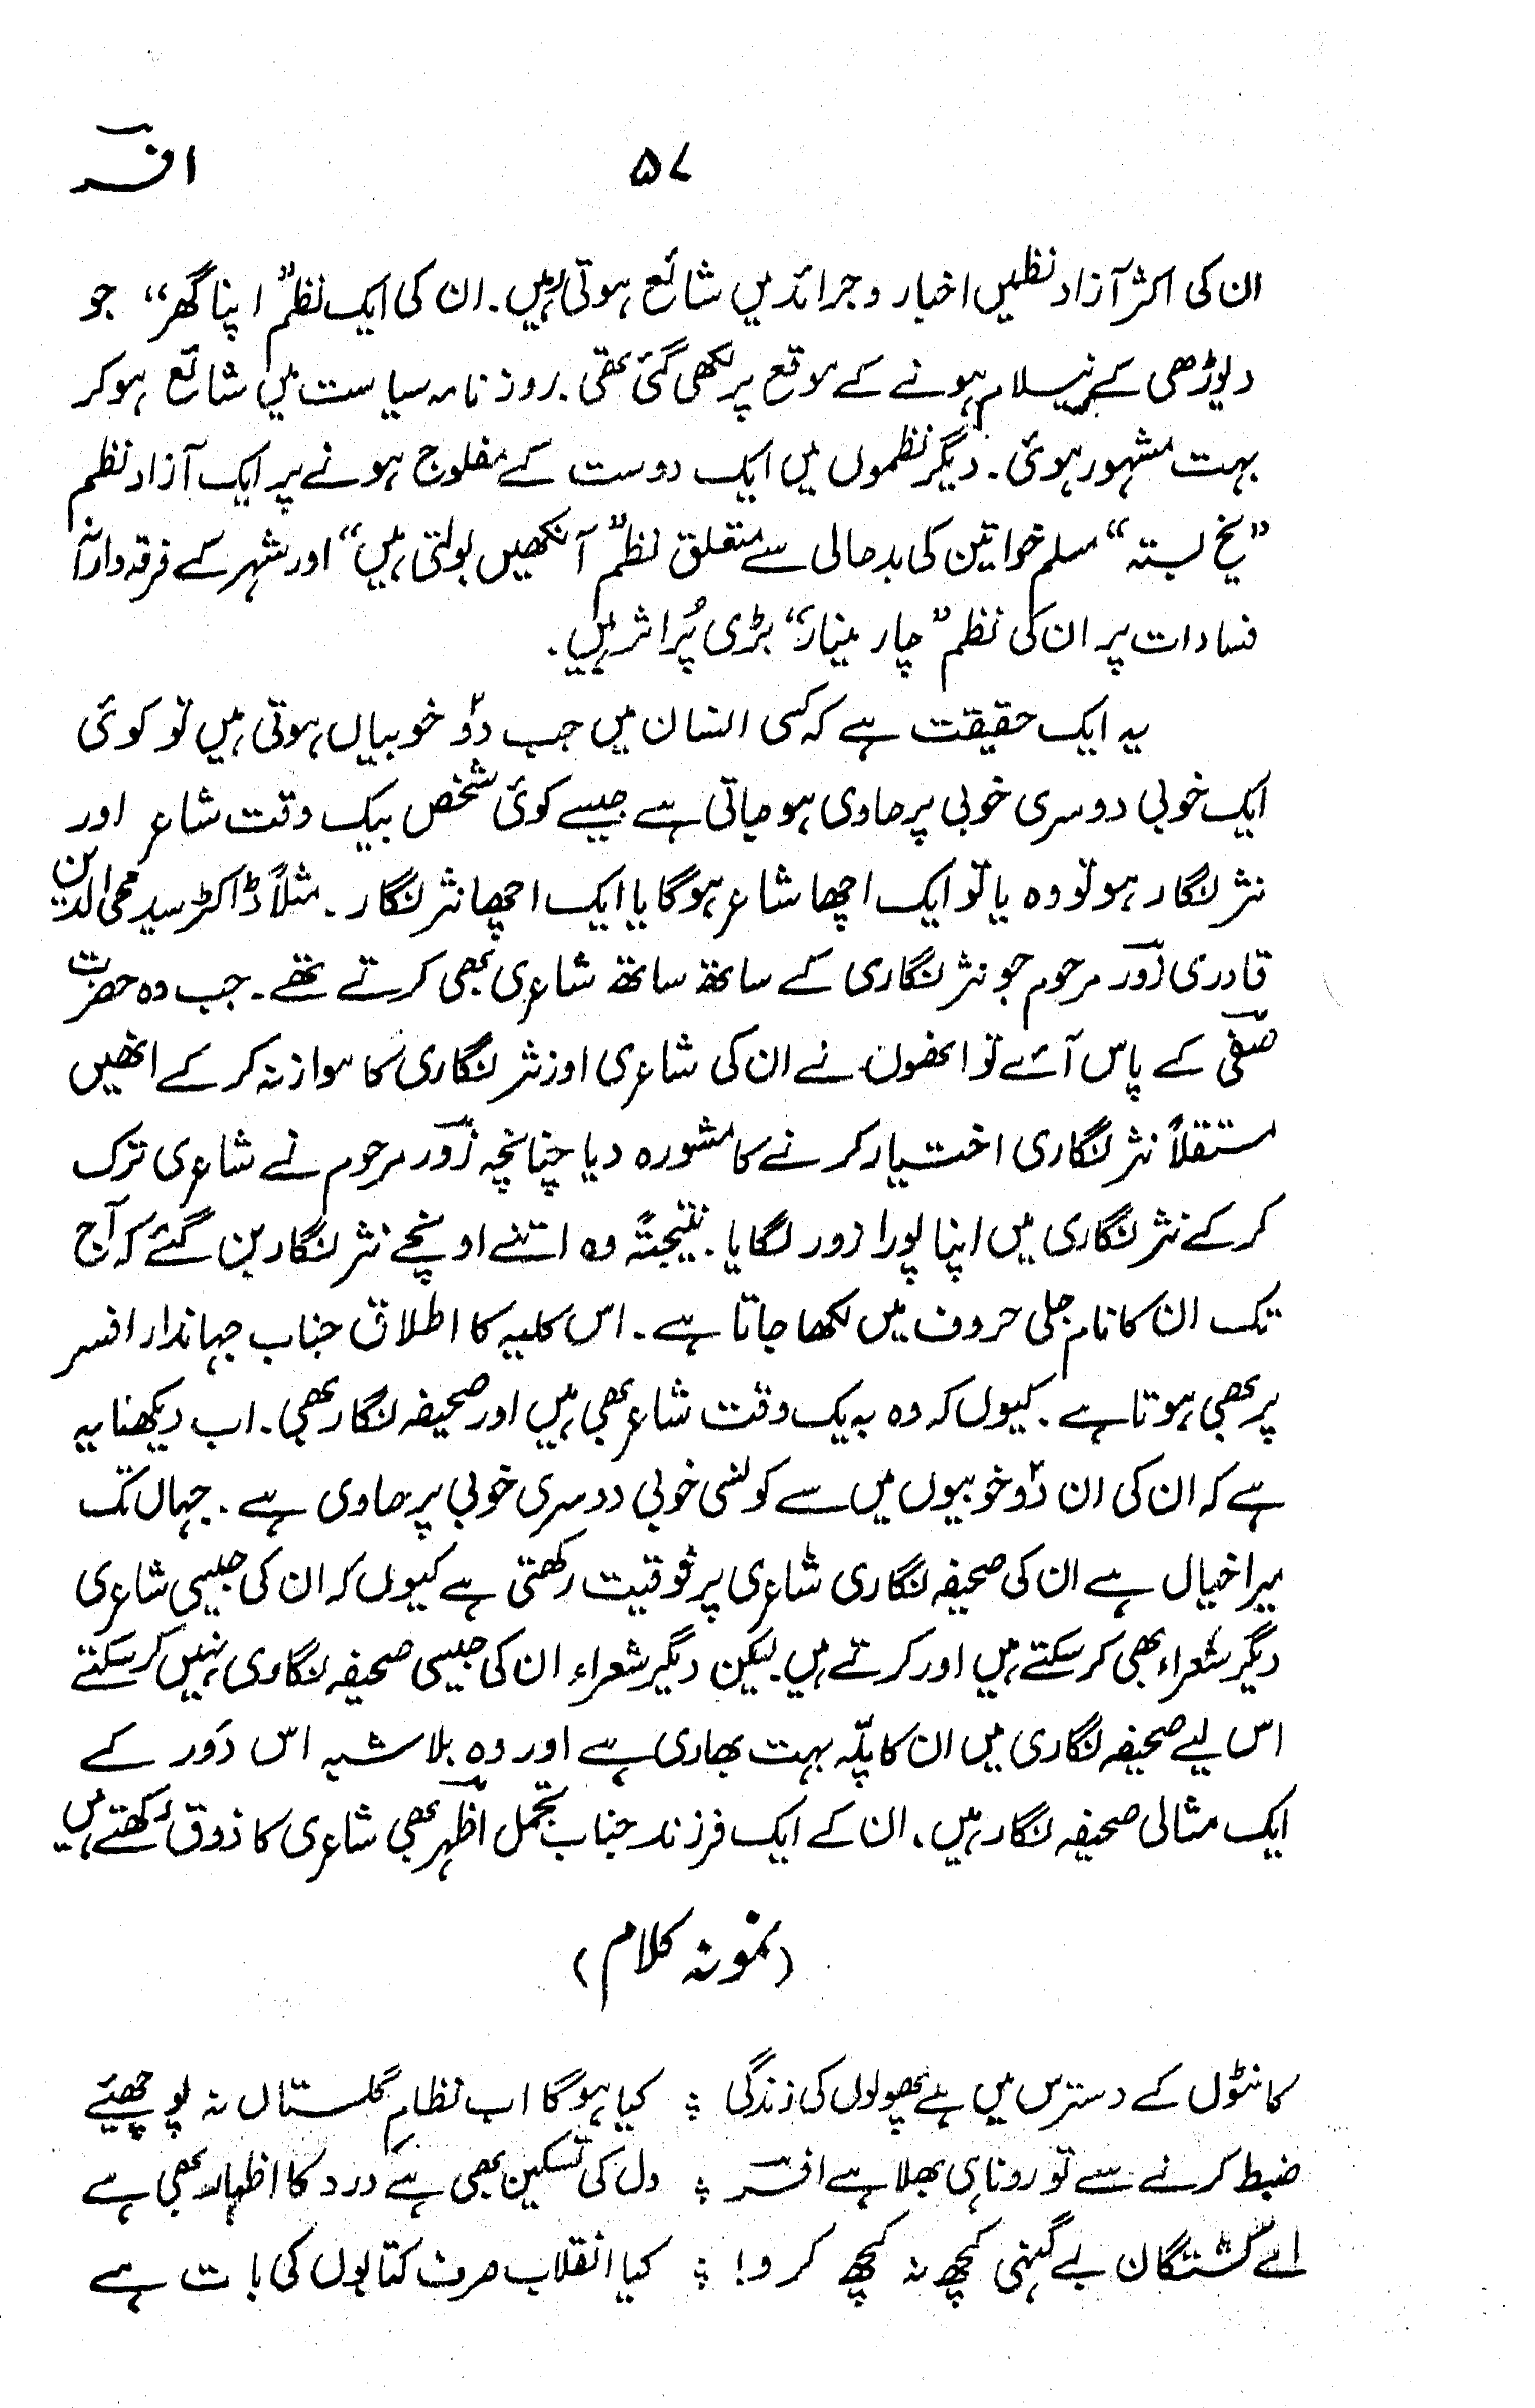 ۵۷ افسؔر
ان کی اکثر آزاد نظمیں اخبار و جرائد میں شائع ہوتی رہیں۔ ان کی ایک نظم "اپنا گھر" جو
دیوڑھی کے نیلام ہونے کے موقع پر لکھی گئی تھی۔ روزنامہ سیاست میں شائع ہوکر
بہت مشہور ہوئی۔ دیگر نظموں میں ایک دوست کے مفلوج ہونے پر ایک آزاد نظم
"یخ بستہ" مسلم خواتین کی بدحالی سے متعلق نظم "آنکھیں بولتی ہیں" اور شہر کے فرقہ وارانہ
فسادات پر ان کی نظم "چار مینار" بڑی پُر اثر ہیں۔
یہ ایک حقیقت ہے کہ کسی انسان میں جب دو خوبیاں ہوتی ہیں تو کوئی
ایک خوبی دوسری خوبی پر حاوی ہوجاتی ہے جیسے کوئی شخص بیک وقت شاعر اور
نثر نگار ہو تو وہ یا تو ایک اچھا شاعر ہوگا یا ایک اچھا نثر نگار۔ مثلاً ڈاکٹر سید محی الدین
قادری زورؔ مرحوم جو نثر نگاری کے ساتھ ساتھ شاعری بھی کرتے تھے۔ جب وہ حضرت
صفیؔ کے پاس آئے تو انھوں نے ان کی شاعری اور نثر نگاری کا موازنہ کر کے انھیں
مستقلاً نثر نگاری اختیار کرنے کا مشورہ دیا چنانچہ زورؔ مرحوم نے شاعری ترک
کرکے نثر نگاری میں اپنا پورا زور لگایا۔ نتیجتہً وہ اتنے اونچے نثر نگار بن گئے کہ آج
تک ان کا نام جلی حروف میں لکھا جاتا ہے۔ اس کلیہ کا اطلاق جناب جہاندار افسر
پر بھی ہوتا ہے۔ کیوں کہ وہ بہ یک وقت شاعر بھی ہیں اور صحیفہ نگار بھی۔ اب دیکھنا یہ
ہے کہ ان کی ان دو خوبیوں میں سے کونسی خوبی دوسری خوبی پر حاوی ہے۔ جہاں تک
میرا خیال ہے ان کی صحیفہ نگاری شاعری پر فوقیت رکھتی ہے کیوں کہ ان کی جیسی شاعری
دیگر شعراء بھی کر سکتے ہیں اور کرتے ہیں۔ لیکن دیگر شعراء ان کی جیسی صحیفہ نگاری نہیں کرسکتے
اس لیے صحیفہ نگاری میں ان کا پلّہ بہت بھاری ہے اور وہ بلا شبہ اس دَور کے
ایک مثالی صحیفہ نگار ہیں۔ ان کے ایک فرزند جناب تجمل اظہرؔ بھی شاعری کا ذوق رکھتے ہیں
(نمونہ کلام)
کانٹوں کے دسترس میں ہے پھولوں کی زندگی ؛ کیا ہوگا اب نظامِ گلستاں نہ پوچھیئے
ضبط کرنے سے تو رونا ہی بھلا ہے افسؔر ؛ دل کی تسکین بھی ہے درد کا اظہار بھی ہے
اے کشتگان بے گنہی کچھ نہ کچھ کرو! ؛ کیا انقلاب صرف کتابوں کی بات ہے